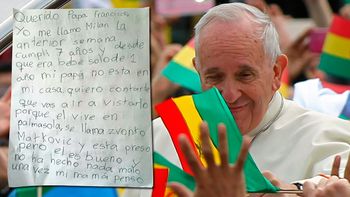 Querido Papa Francisco
Yo me llamo Milan la
anterior semana
cumpli 7 años y desde
que era bebe solo de 1
año mi papy no esta en
mi casa quiero contarte
que vas air a visitarlo
porque el vive en
palmasola, se llama zvonko
Matkovic y esta preso
pero el es bueno y
no ha hecho nada malo
una vez mi mama penso